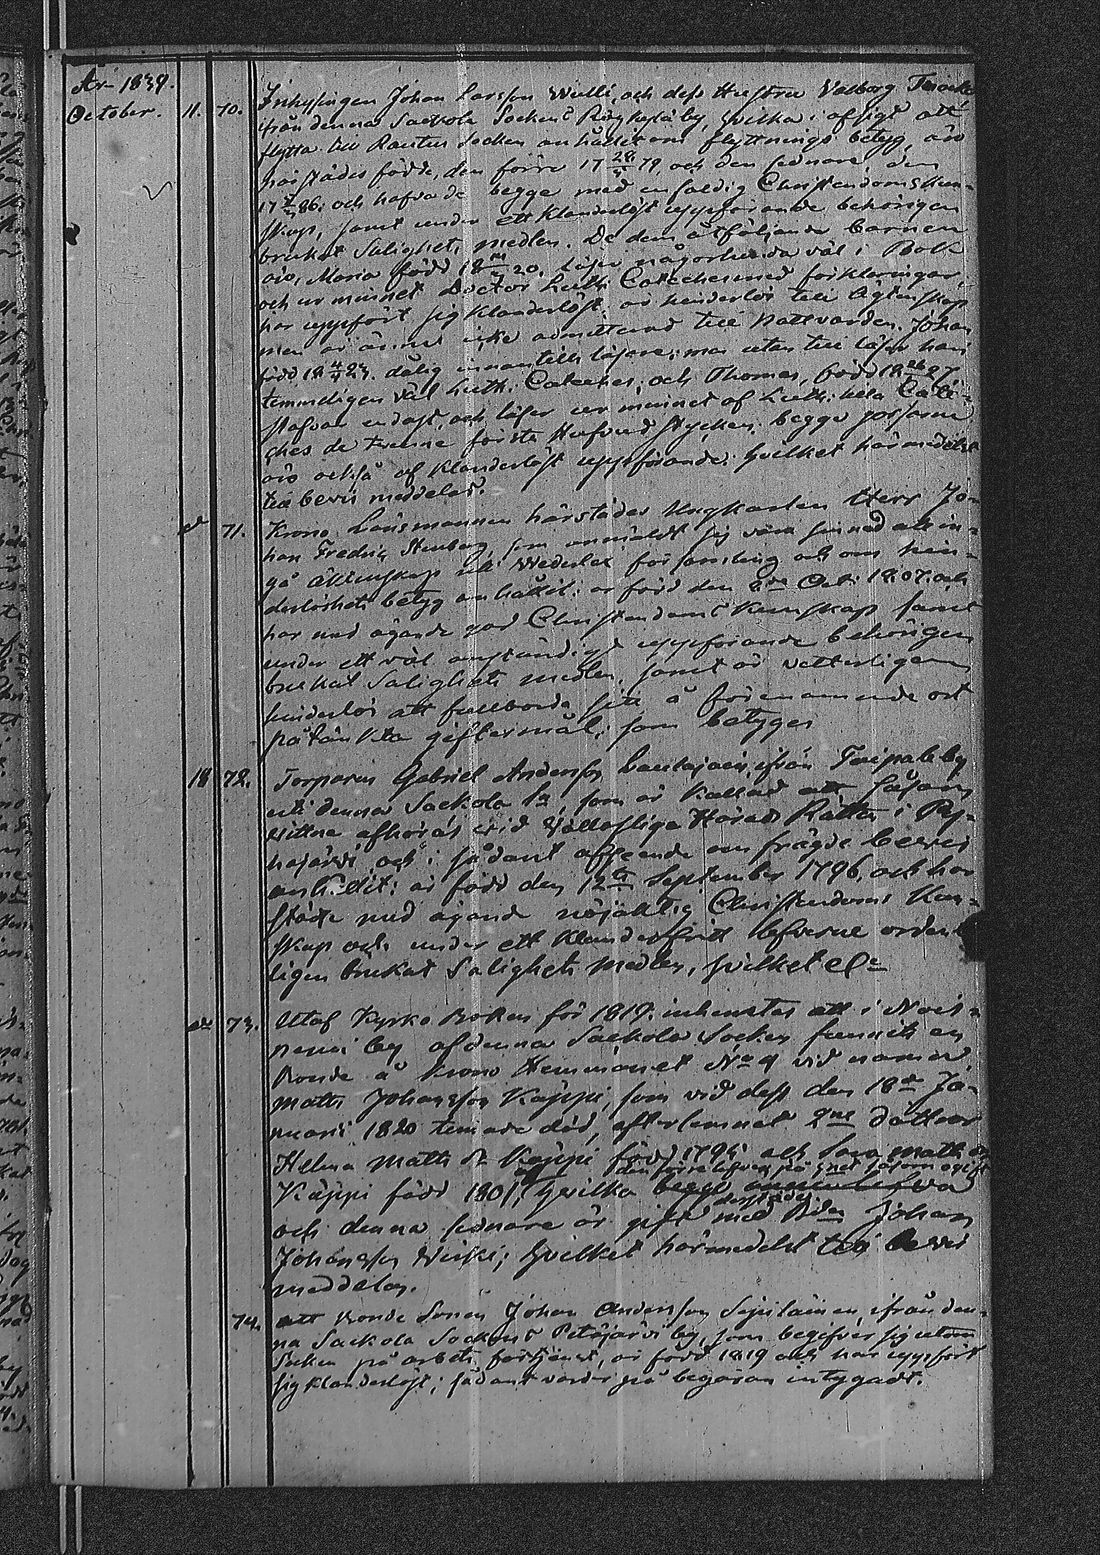 År 1839.
October. 11. 70. Inhysingen Johan Larsson Wulli, och dess Hustru Valborg
ifrån denna Sackola Sockens by, hvilka i afsigt att
flytta till Rautus Socken anhållit om flyttnings betyg, äro
härstädes födde, den förre 17 28 79, och den sednare den
17 86: och hafva de begge med enfaldig Christendoms Kun-
skap, samt under ett klanderlöst uppförande behörigen
brukat Salighets medlen. De dem åtföljande barnen
äro, Maria född 18 20. läser någorlunda väl i Bok
och ur minnet Doctor Luth. Cateches med förklaringar,
har uppfört sig klanderlöst, är hinderlös till Ägtenskap
men är ännu icke admitterad till Nattvarden. Johan
född 18 23. dålig innantill läsare; men utan till läser han
temmeligen väl Luth. Cateches, och Thomas, född 18 27
stafvar endast, och läser ur minnet af Luth: lilla Cate-
ches de trenne första Hufvud stycken. begge gossarne
äro också af klanderlöst uppförande; hvilket härmedelst
till bevis meddelas.
d 71. Krono Länsmannen härstädes Ungkarlen Herr Jo-
han Fredric Stenberg, som anmäldt sig vara sinnad att in-
gå äktenskap uti Wederlax församling och om hin-
derlöshets betyg anhållit: är född den 2 Oct: 1807. och
har med ägande god Christendoms Kunskap samt
under ett väl anständigt uppförande behörigen
brukat Salighets medlen, samt är vetterligen
hinderlös att fullborda sitt å förenämnde ort
påtänkta giftermål; som betygas
18 72. Torparen Gabriel Andersson ifrån Taipale by
uti denna Sackola Sn, som är kallad att såsom
vittne afhöras vid Vällofliga Härads Rätten i Py-
häjärvi och i sådant afseende om frägde bevis
anhållit: är född den 12te September 1796, och har
städse med ägande nöjaktig Christendoms Kun-
skap och under ett klanderfritt lefverne ordent-
ligen brukat Salighets medlen, hvilket etc
d 73. Utaf Kyrko Boken för 1819. inhemtas att i
by af denna Sackola Socken funnits en
Bonde å Krono Hemmanet No 9 vid namn
Matts Johansson Käppi, som vid dess den 18de Ja-
nuarii 1820 timade död, efterlemnat 2ne döttrar
Helena Matts dr Käppi född 1794; och Matts dr
den förre lefver på såsom ogift
Käppi född 1801, hvilka begge
och denna sednare är gift med Bdn Johan
Johansson; hvilket härmedelst till bevis
meddelas.
74. att Bonde Sonen Johan Andersson ifrån den-
na Sackola Sockens Petäjärvi by, som begifver sig utom
Socken på arbets förtjenst, är född 1819 och har uppfört
sig klanderlöst; sådant varder på begäran intygadt.